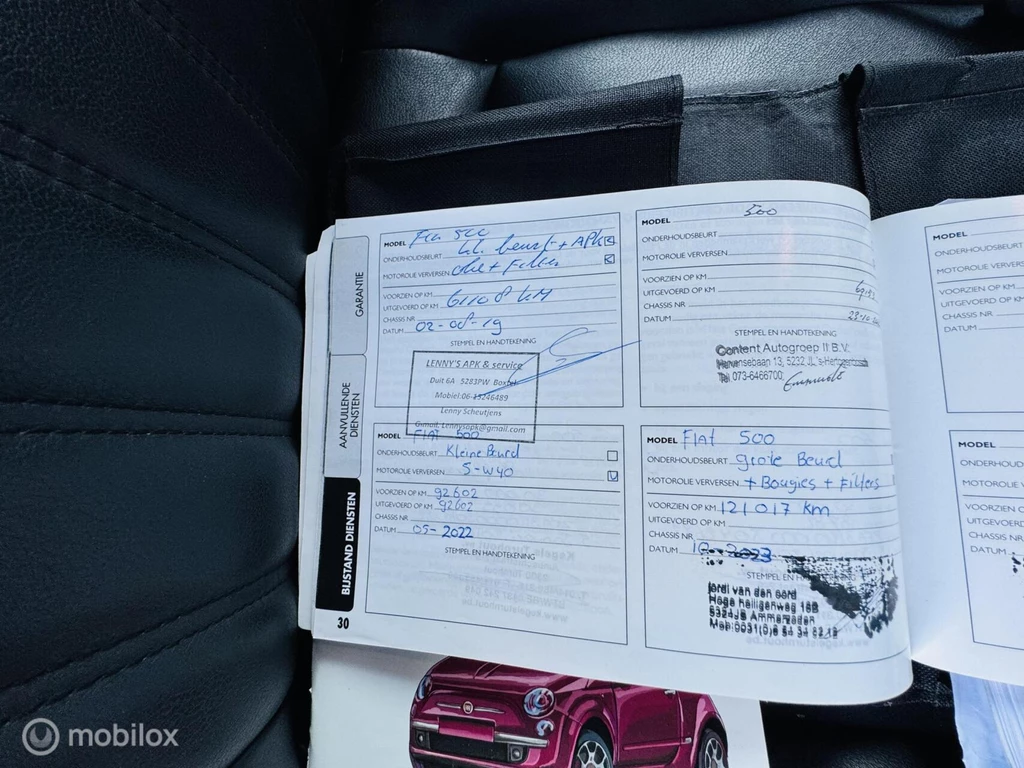 GARANTIE
AANVULLENDE
DIENSTEN
BIJSTAND DIENSTEN
30
MODEL
ONDERHOUDSBEURT kl. beurt + APK
MOTOROLIE VERVERSEN olie + Filter
VOORZIEN OP KM
UITGEVOERD OP KM 61108 KM
CHASSIS NR
DATUM 02-08-19
STEMPEL EN HANDTEKENING
LENNY'S APK & service
Duit 6A 5283PW Boxtel
Mobiel:06-13246489
Lenny Scheutjens
Gmail. Lennysapk@gmail.com
MODEL 500
ONDERHOUDSBEURT
MOTOROLIE VERVERSEN
VOORZIEN OP KM
UITGEVOERD OP KM
CHASSIS NR
DATUM
STEMPEL EN HANDTEKENING
Content Autogroep II B.V.
Hervensebaan 13, 5232 JL 's-Hertogenbosch
Tel. 073-6466700
MODEL FIAT 500
ONDERHOUDSBEURT Kleine Beurd
MOTOROLIE VERVERSEN 5-W40
VOORZIEN OP KM 92602
UITGEVOERD OP KM 92602
CHASSIS NR
DATUM 05-2022
STEMPEL EN HANDTEKENING
MODEL FIAT 500
ONDERHOUDSBEURT grote Beurd
MOTOROLIE VERVERSEN + Bougies + Filters
VOORZIEN OP KM 121017 km
UITGEVOERD OP KM
CHASSIS NR
DATUM 10-2023
STEMPEL EN
jordi van den oord
Hoge heiligenweg 16B
5324JB Ammerzoden
Mob:0031(0)6 54 34 62 12
MODEL
ONDERHOUDSBEURT
MOTOROLIE VERVERSEN
VOORZIEN OP KM
UITGEVOERD OP KM
CHASSIS NR
DATUM
MODEL
ONDERHOUDSBEU
MOTOROLIE VERV
VOORZIEN OP K
UITGEVOERD OP
CHASSIS NR
DATUM
mobilox